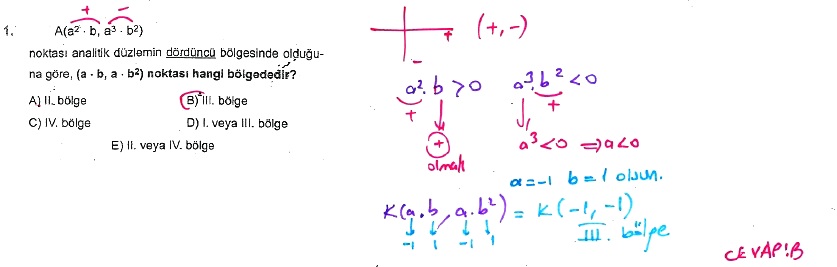 + −
1. A(a² · b, a³ · b²)
noktası analitik düzlemin dördüncü bölgesinde olduğu-
na göre, (a · b, a · b²) noktası hangi bölgededir?
A) II. bölge B) III. bölge
C) IV. bölge D) I. veya III. bölge
E) II. veya IV. bölge
+ − (+, −)
a².b > 0 a³.b² < 0
+ +
+ a³ < 0 ⇒ a < 0
olmalı
a = −1 b = 1 olsun.
K(a.b, a.b²) = K(−1, −1)
−1 1 −1 1 III. bölge
CEVAP: B